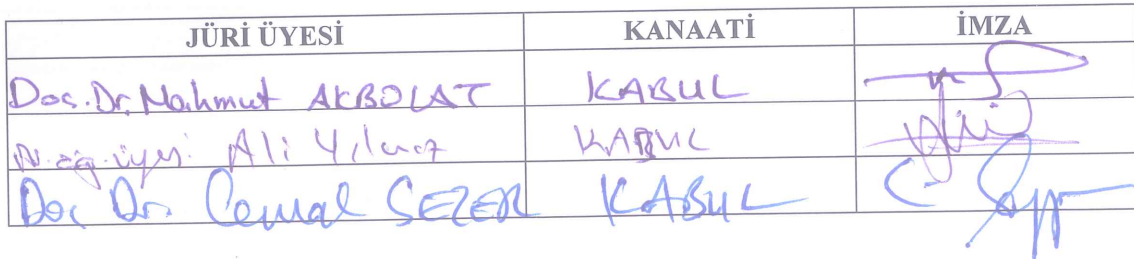 JÜRİ ÜYESİ KANAATİ İMZA
Doç. Dr. Mahmut AKBOLAT KABUL
öğ. üyesi Ali Yılmaz KABUL
Doç Dr. Cemal SEZER KABUL